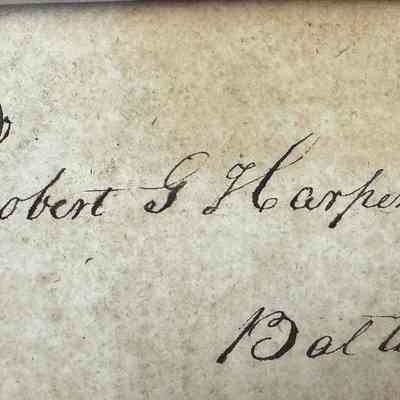 obert G Harper
Balti